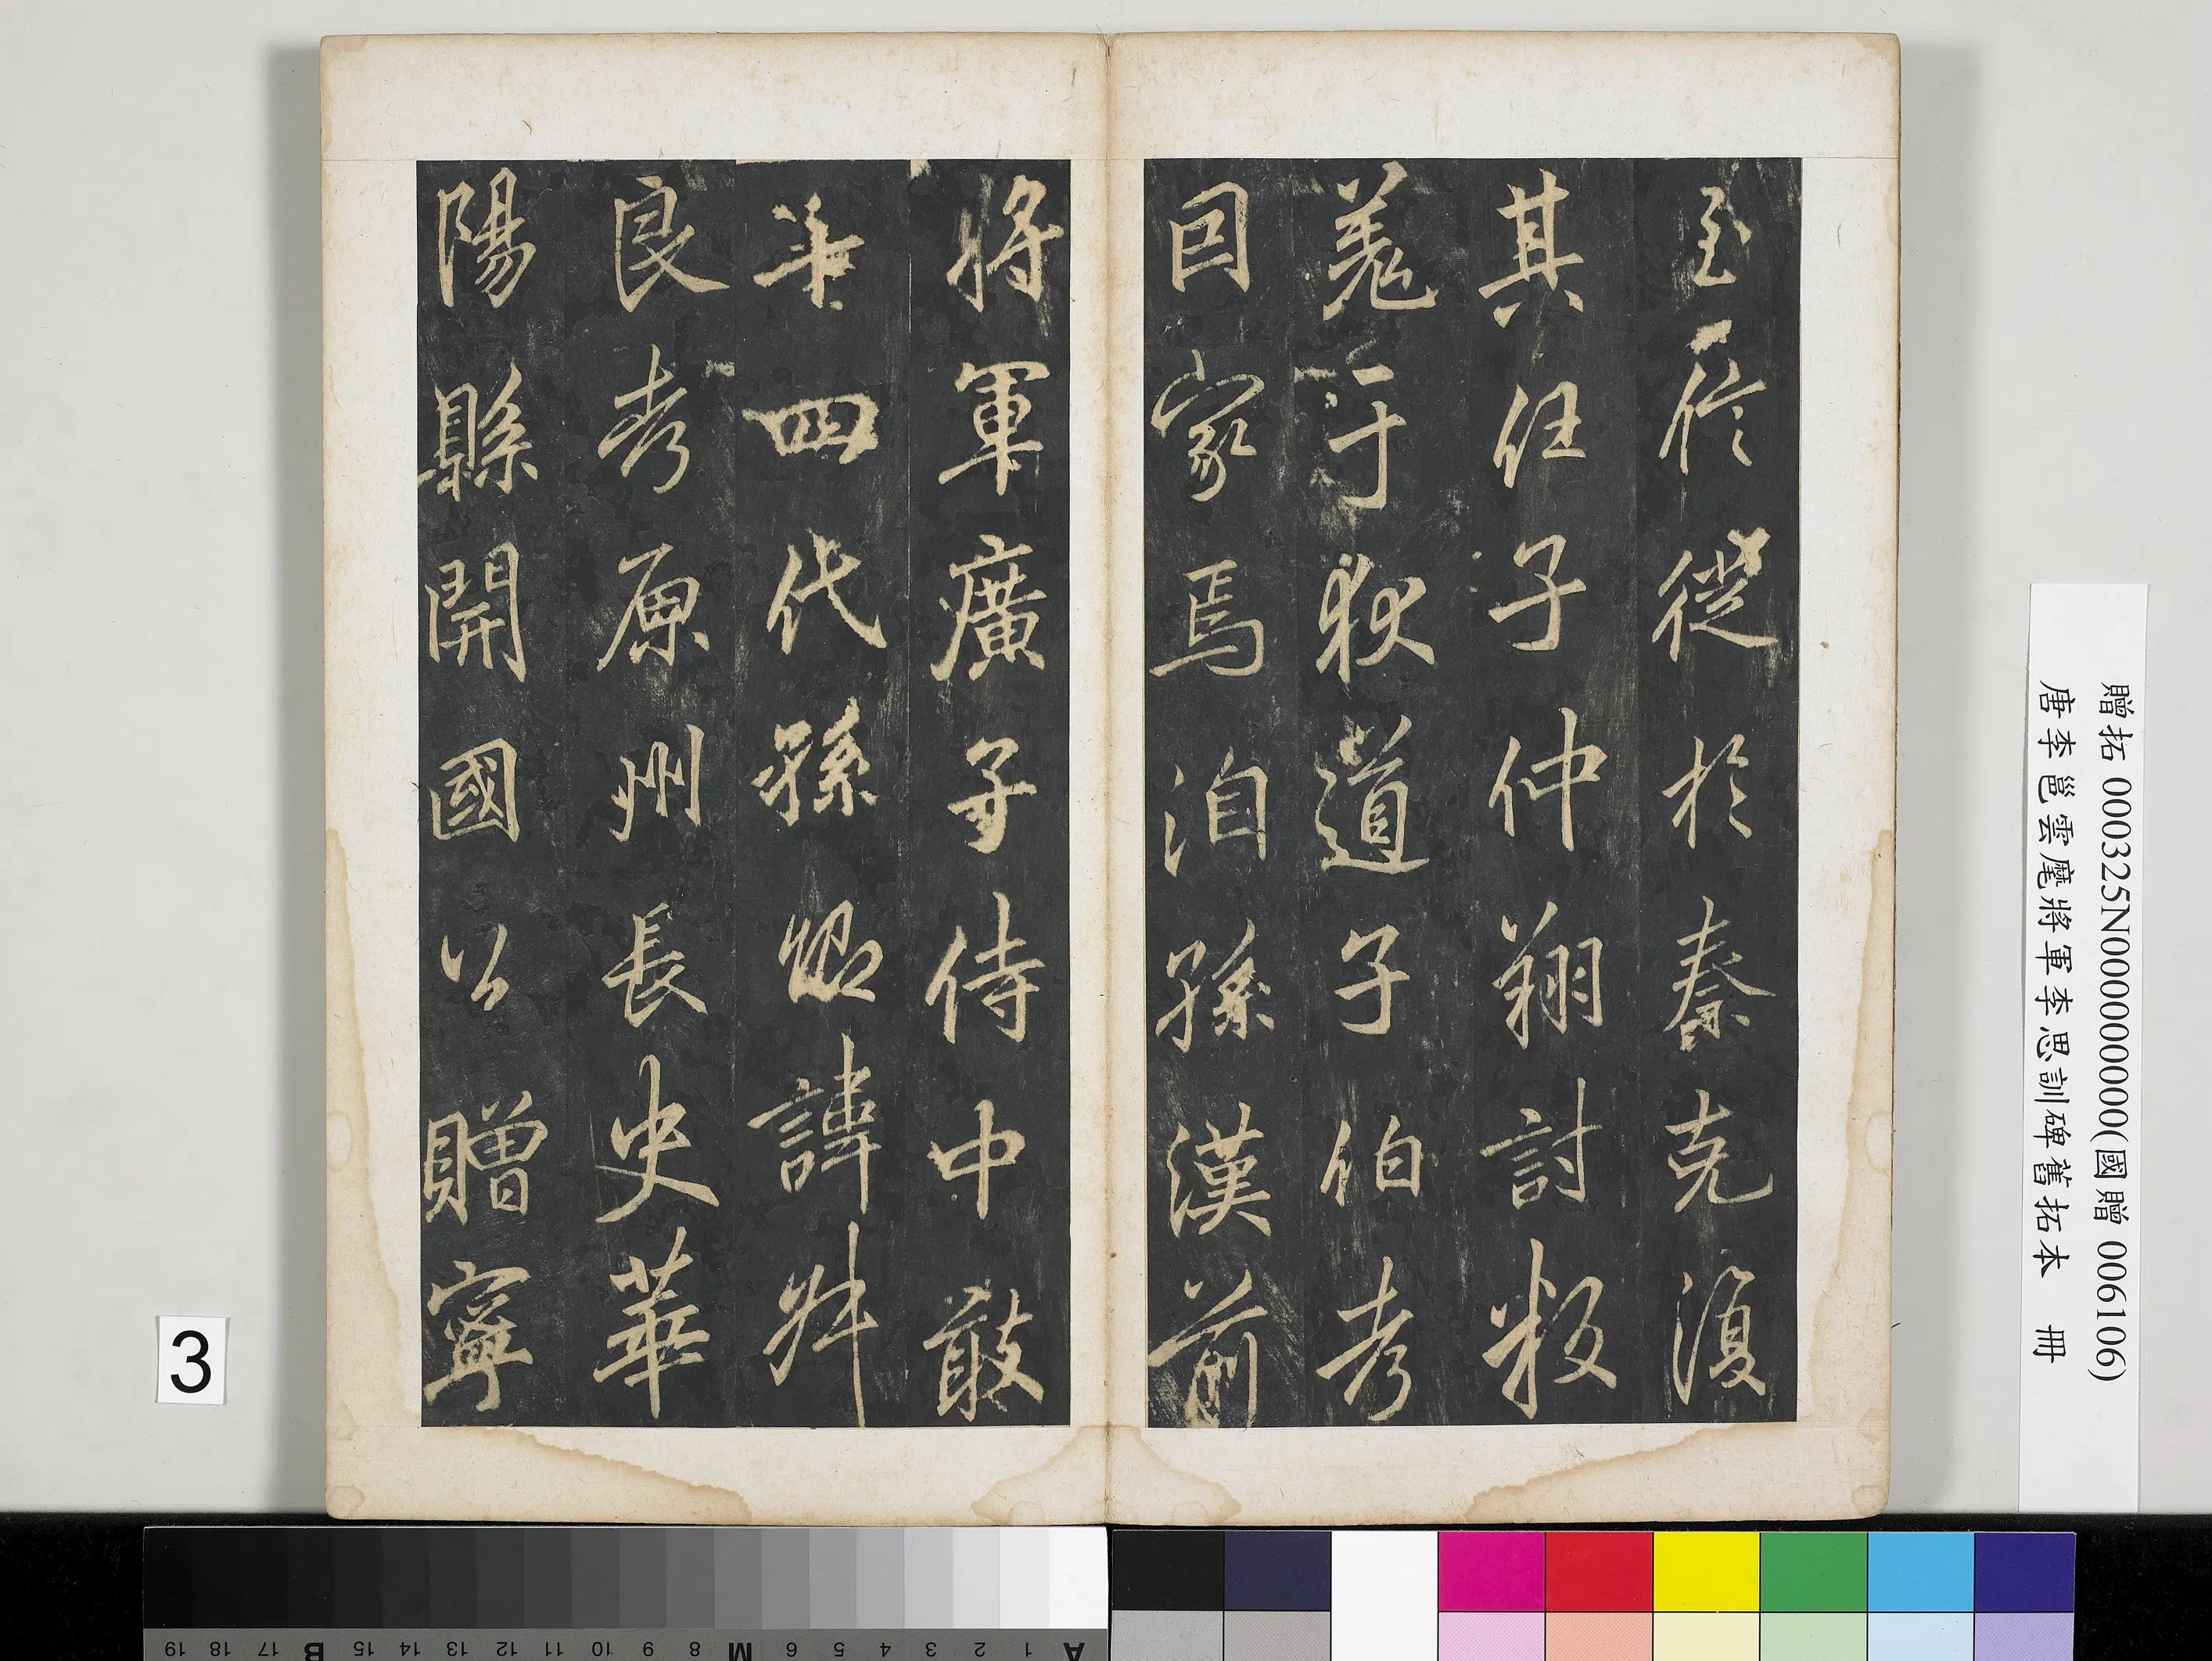 至信徙於秦克復
其任子仲翔討叛
羌于狄道子伯考
因家焉洎孫漢前
將軍廣子侍中敢
四代孫諱叔
良考原州長史華
陽縣開國公贈寧
贈拓 000325N000000000(國贈 006106)
唐李邕雲麾將軍李思訓碑舊拓本 冊
3
A 1 2 3 4 5 6 M 8 9 10 11 12 13 14 15 B 17 18 19